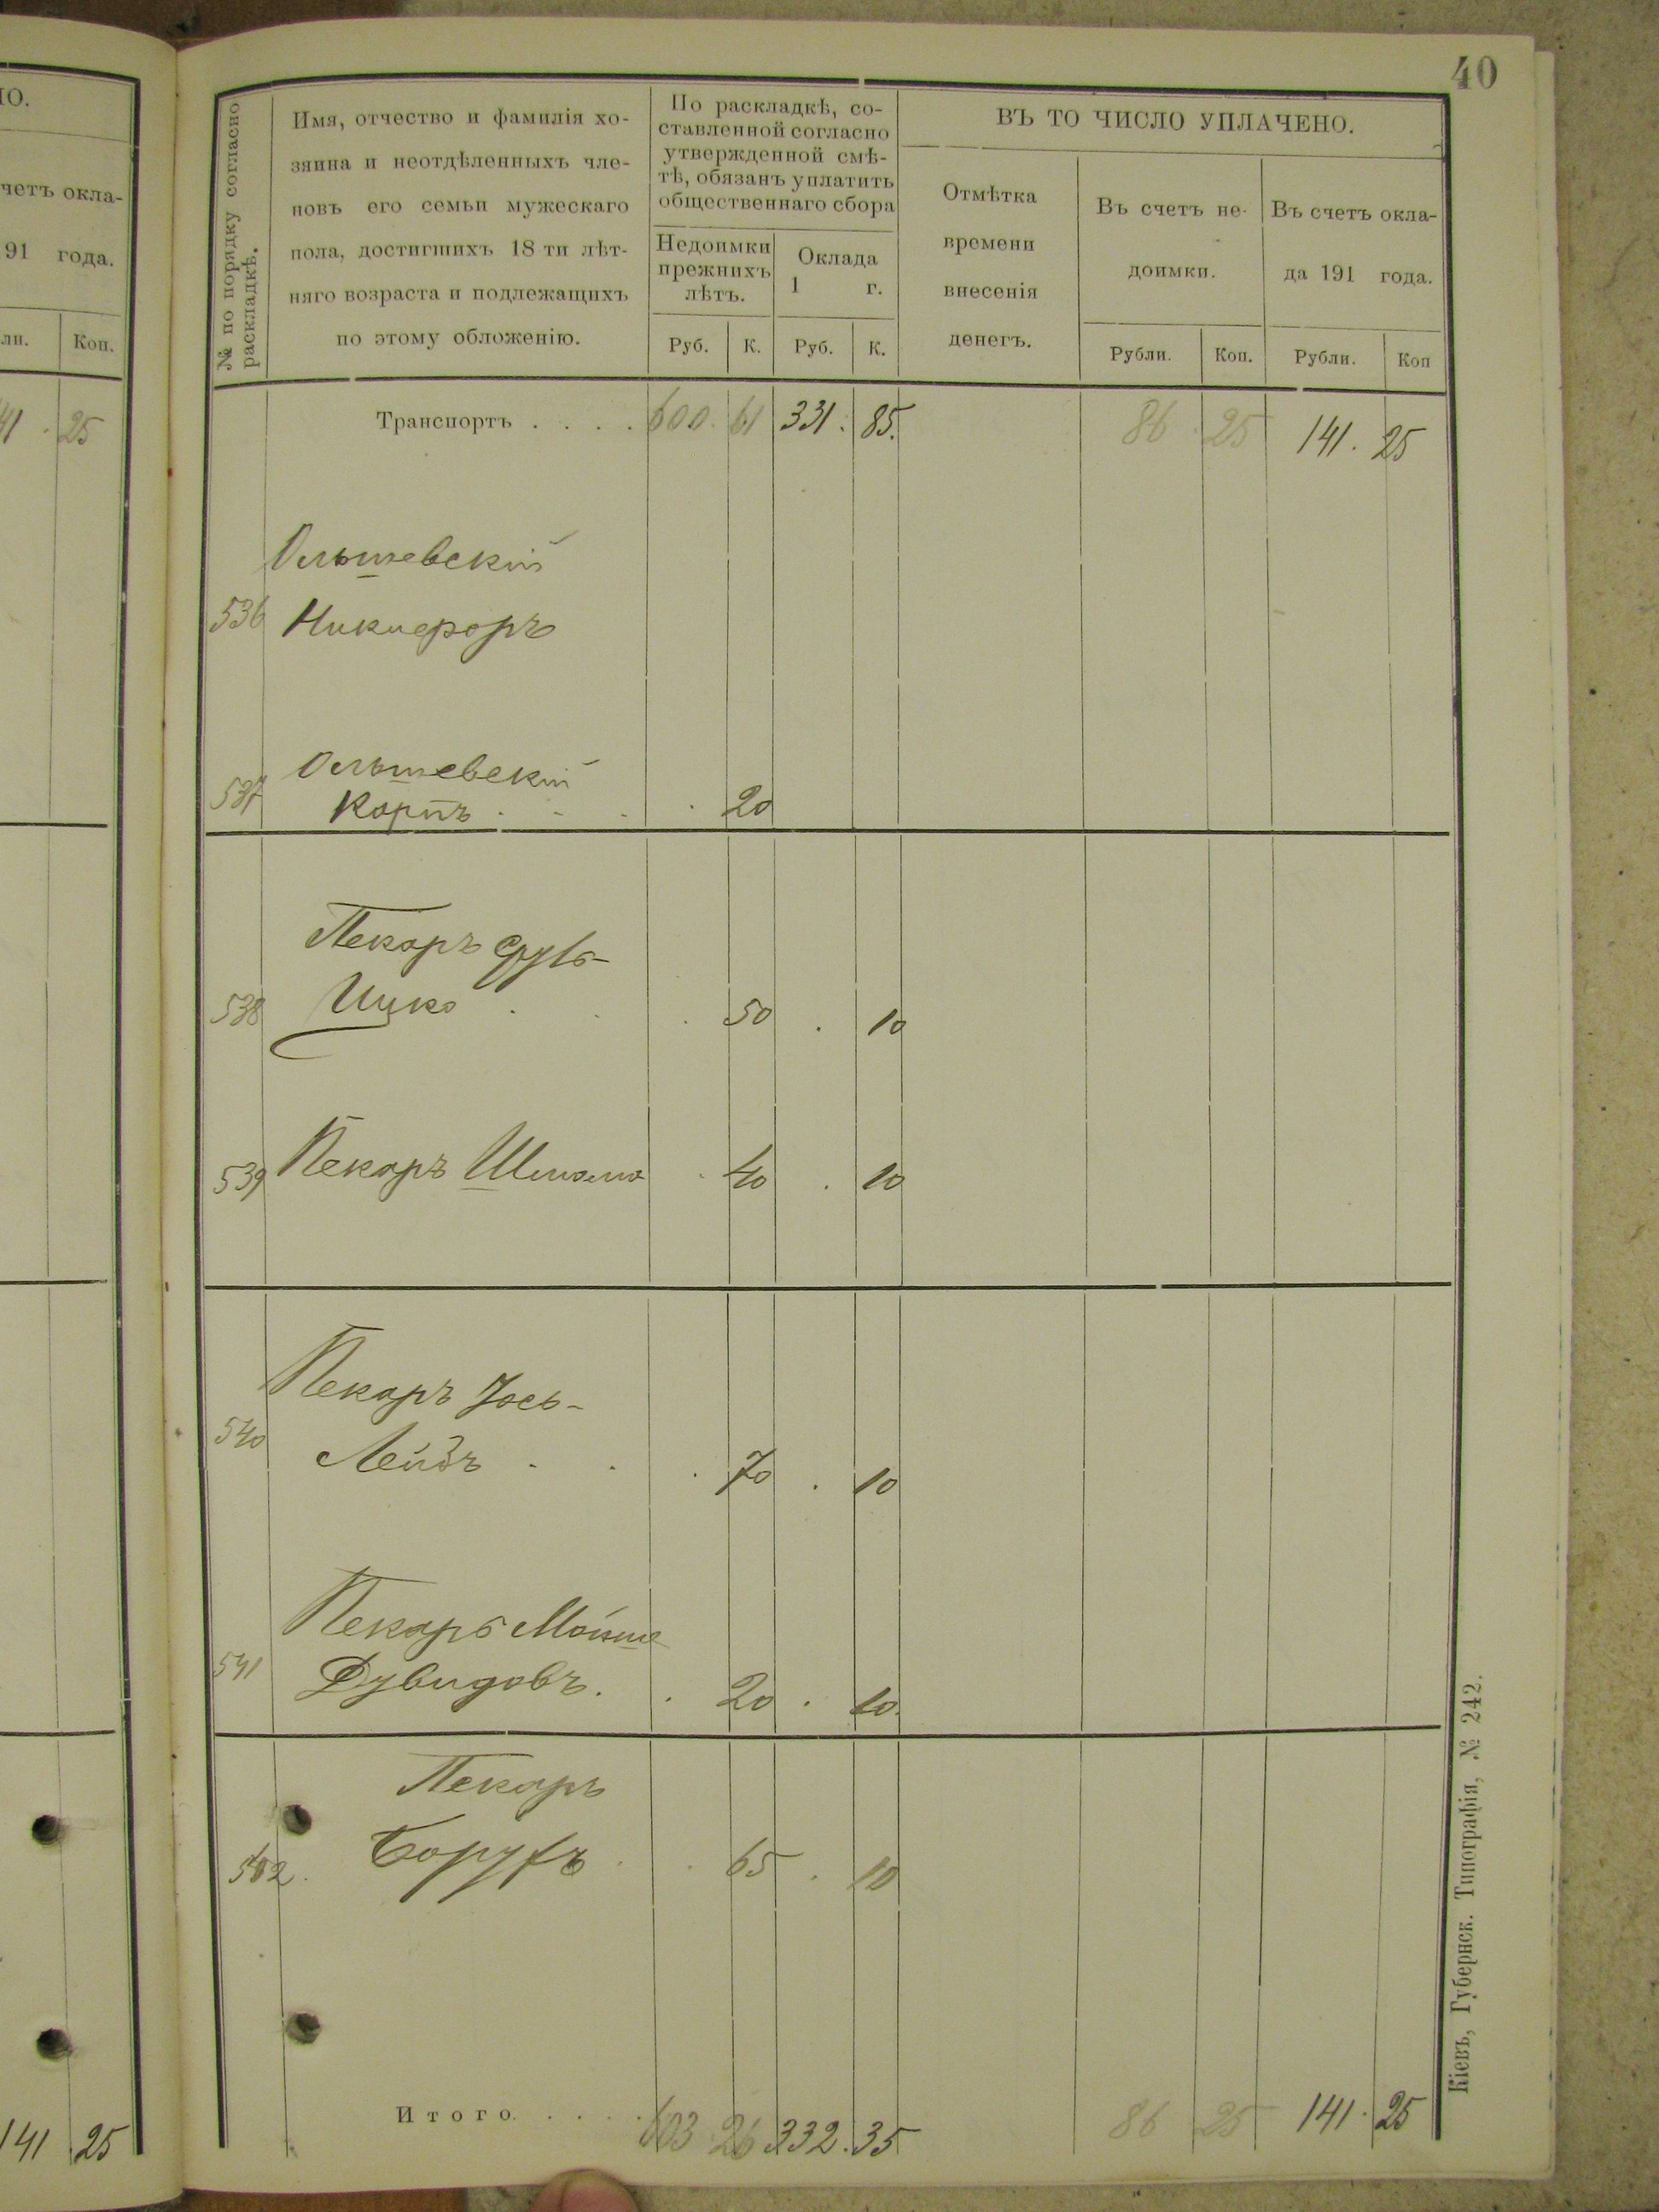 40
IO.
четъ окла-
91 года.
ли. Коп.
41 . 25
141 . 25
№ по порядку согласно
раскладкѣ.
Имя, отчество и фамилія хо-
зяина и неотдѣленныхъ чле-
новъ его семьи мужескаго
пола, достигшихъ 18 ти лѣт-
няго возраста и подлежащихъ
по этому обложенію.
По раскладкѣ, со-
ставленной согласно
утвержденной смѣ-
тѣ, обязанъ уплатить
общественнаго сбора
Недоимки
прежнихъ
лѣтъ.
Оклада
1 г.
Руб. К. Руб. К.
ВЪ ТО ЧИСЛО УПЛАЧЕНО.
Отмѣтка
времени
внесенія
денегъ.
Въ счетъ не-
доимки.
Рубли. Коп.
Въ счетъ окла-
да 191 года.
Рубли. Коп
Транспортъ . . . . 600. 61 331. 85. 86 . 25 141. 25
Ольшевскій
536 Никифоръ
Ольшевскій
537 Карпъ . - . . 20
Пекаръ Сруль-
538 Ицко . . . 50 . 10
539 Пекаръ Шмилю . 40 . 10
Пекаръ Іось-
540 Лейбъ - . . 70 . 10
Пекаръ Мойше
541 Дувидовъ. . 20 . 10.
Пекаръ
542. Борухъ . . 65 . 10
Итого. . . . . 603 26 332. 35 86 25 141. 25
Кіевъ, Губернск. Типографія, № 242.